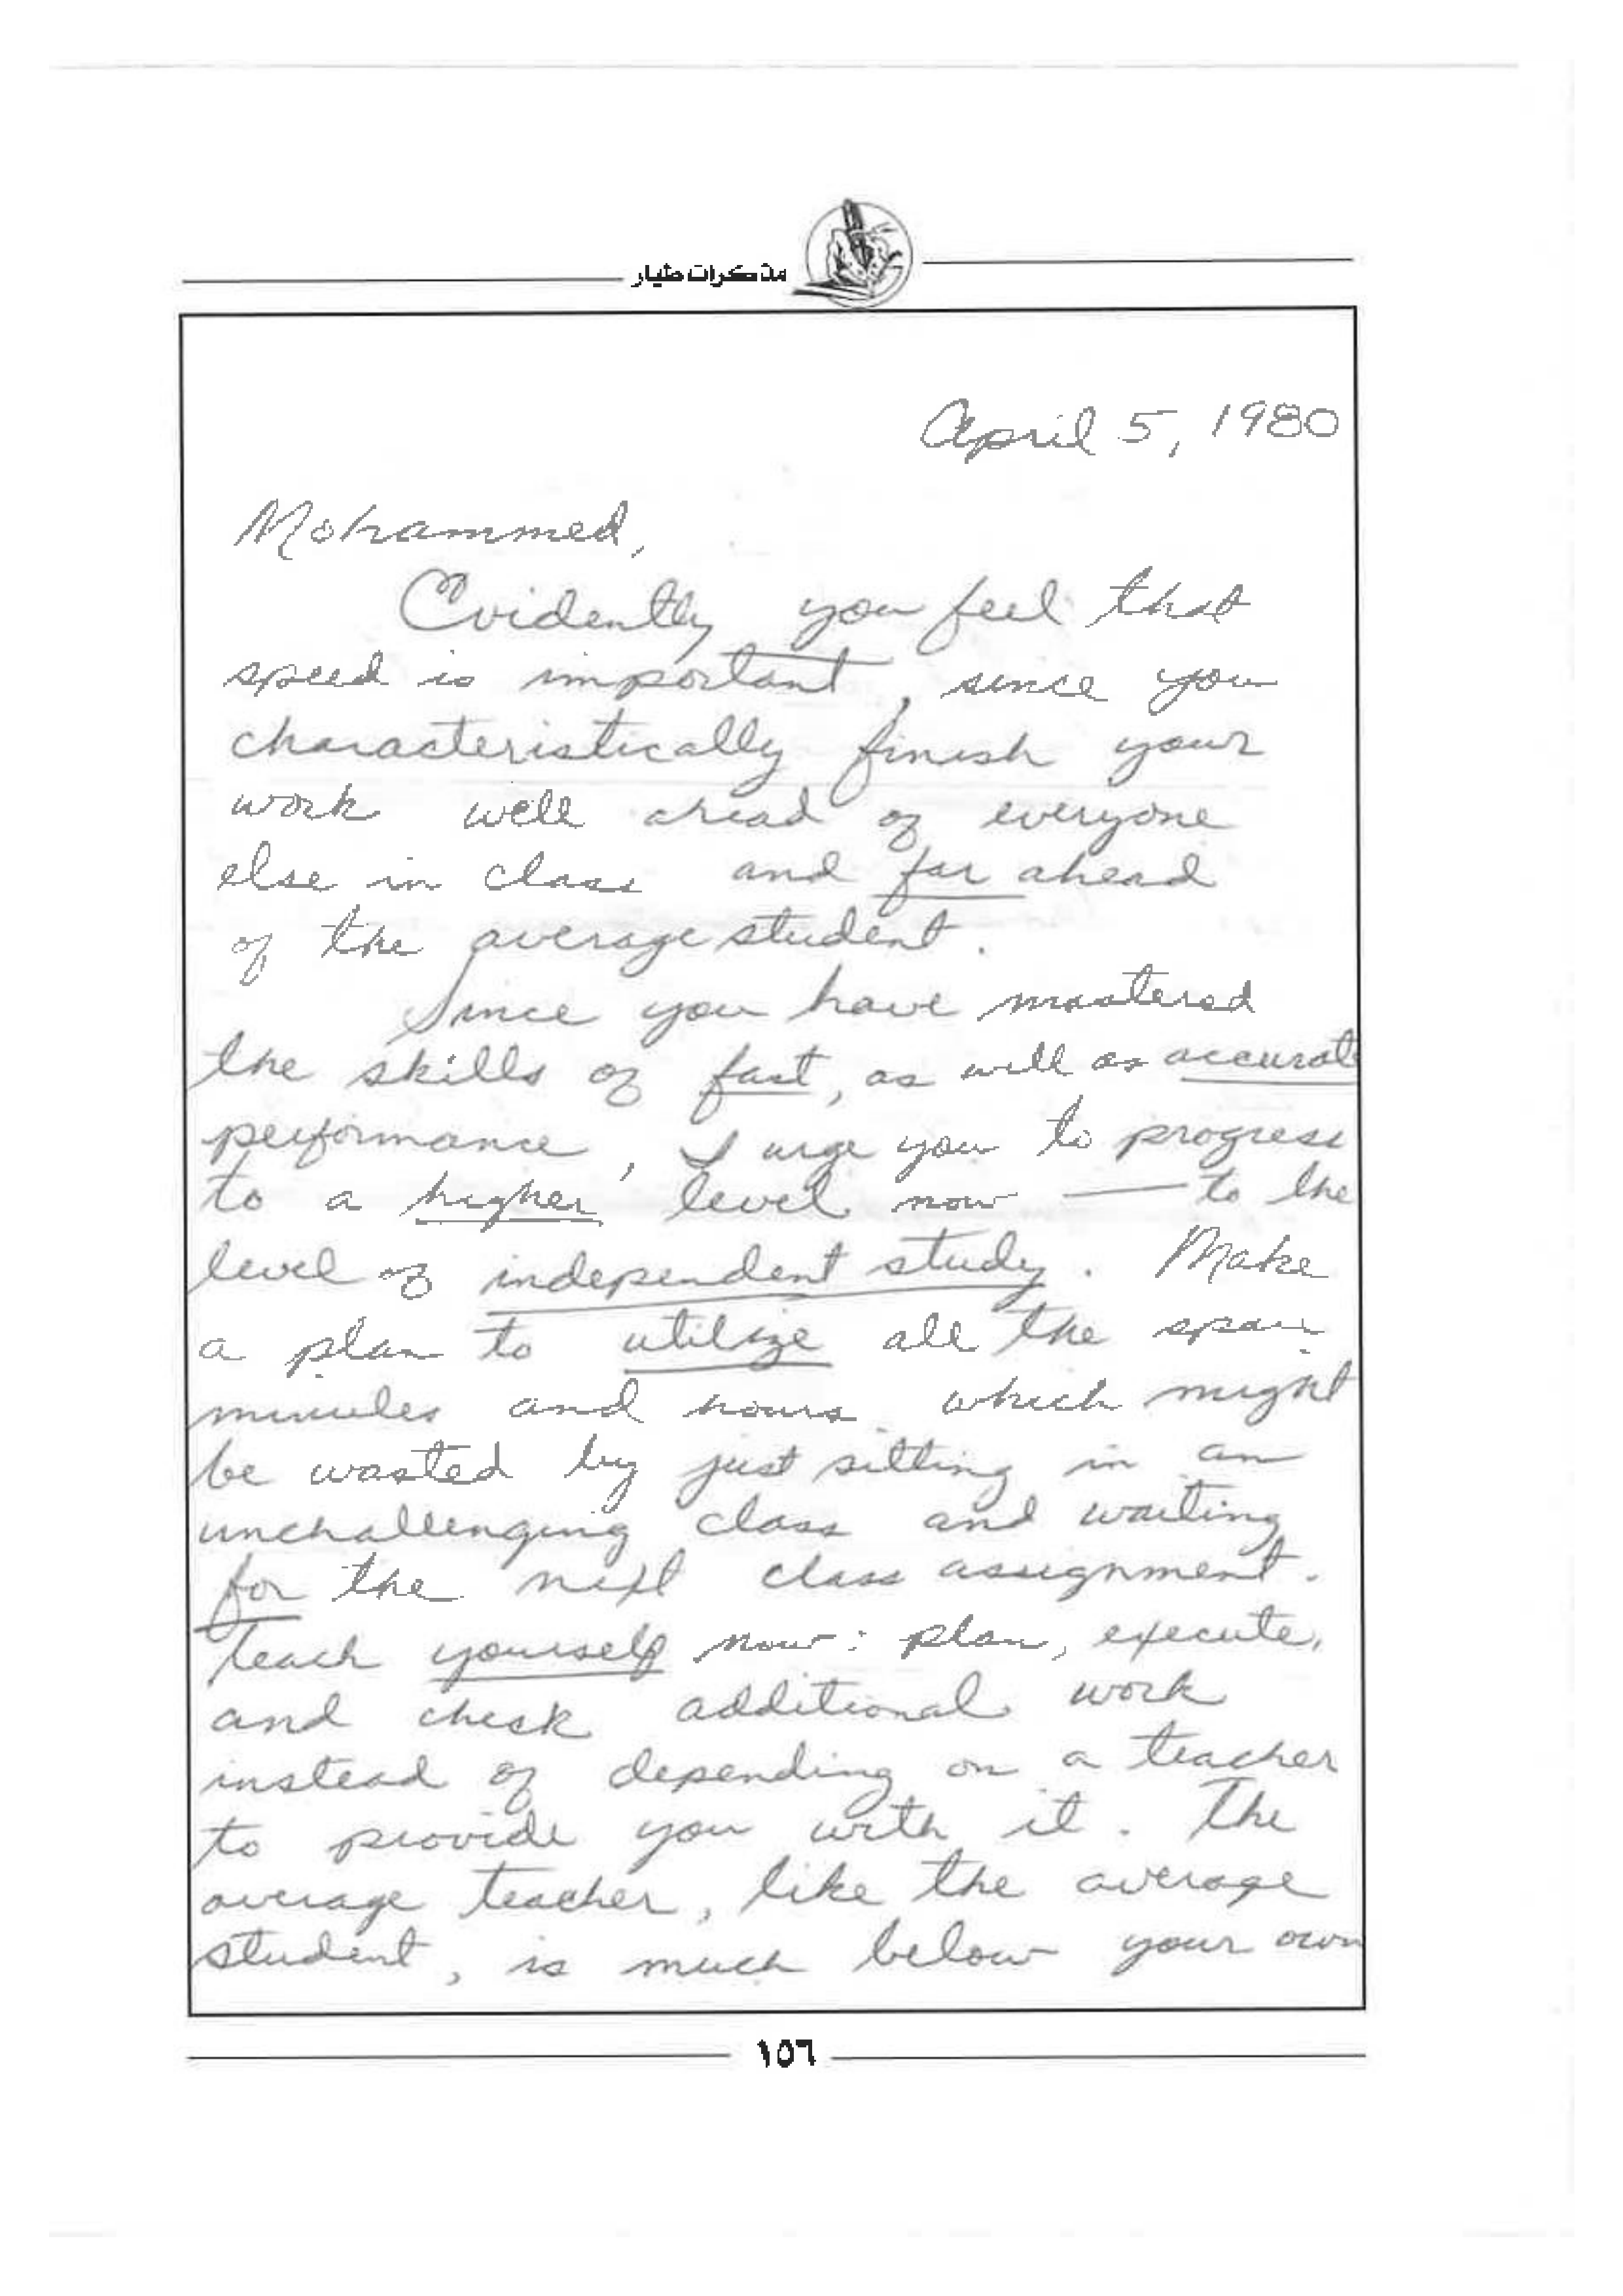 مذكرات طيار
April 5, 1980
Mohammed,
Evidently you feel that
speed is important, since you
characteristically finish your
work well ahead of everyone
else in class and far ahead
of the average student.
Since you have mastered
the skills of fast, as well as accurate
performance, I urge you to progress
to a higher level now — to the
level of independent study. Make
a plan to utilize all the spare
minutes and hours which might
be wasted by just sitting in an
unchallenging class and waiting
for the next class assignment.
Teach yourself now: plan, execute,
and check additional work
instead of depending on a teacher
to provide you with it. The
average teacher, like the average
student, is much below your own
١٥٦